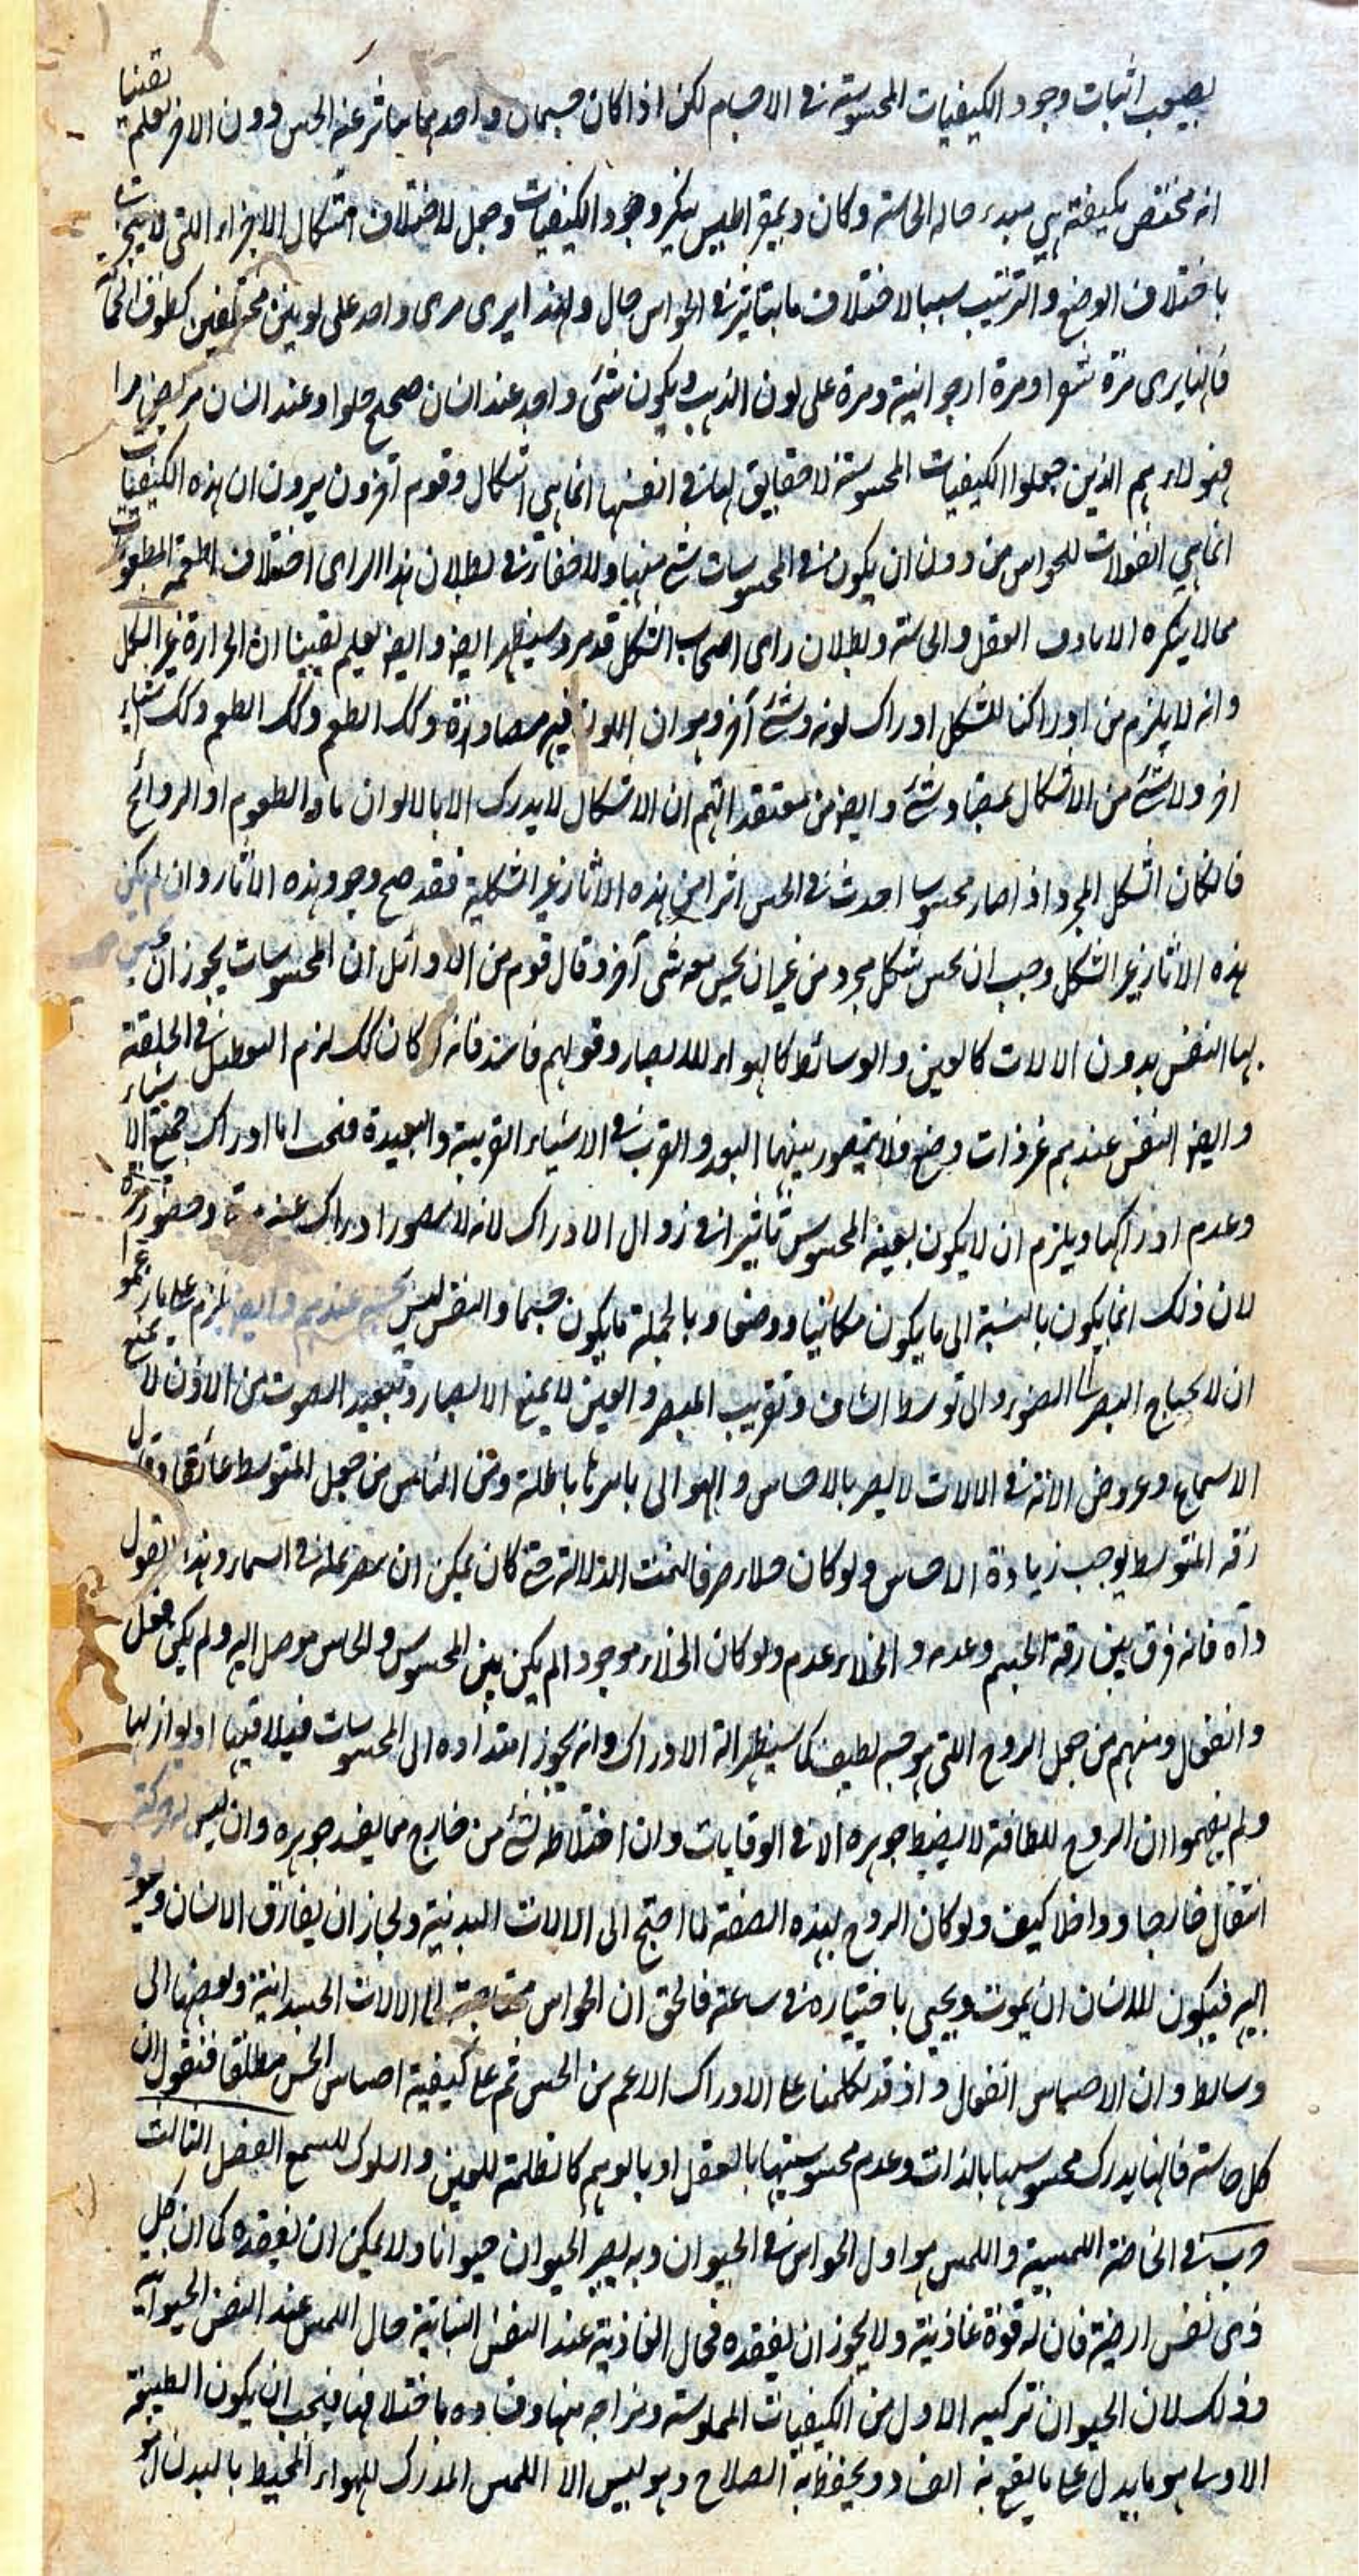 يصعب اثبات وجود الكيفيات المحسوسة في الاجسام لكن اذا كان جسمان واحدهما يتاثر عنه الحس دون الاخر نعلم يقينا
انه مختص بكيفية هي مبدء حاله الحاسة وكان ديمقراطيس ينكر وجود الكيفيات وجعل لاختلاف اشكال الاجزاء اللتي لا يتجزى
باختلاف الوضع والترتيب سببا لاختلاف ما يتاثر في الحواس حال ولهذا يرى مرى واحد على لونين مختلفين كطوق الحمامة
فانها يرى مرة شقرا ومرة ارجوانية ومرة على لون الذهب ويكون شئ واحد عند انسان صحيح حلوا وعند انسان مريض مرا
فهولاء هم الذين جعلوا الكيفيات المحسوسة لا حقايق لها في انفسها انما هي اشكال وقوم آخرون يرون ان هذه الكيفيات
انما هي انفعالات للحواس من دون ان يكون في المحسوسات شئ منها ولا خفاء في بطلان هذا الراى اختلاف اطعمة المطعومات
مما لا ينكره الا باوف العقل والحاسة وبطلان راى اصحاب الشكل قد مر وسيظهر ايضا وايضا يعلم يقينا ان الحرارة غير الشكل
وانه لا يلزم من ادراكنا للشكل ادراك لونه وشئ آخر وهو ان اللون فيه مضادة وكك الطعم وكك الطعم وكك اشياء
اخر ولا شئ من الاشكال بمضاد شئ وايضا من معتقداتهم ان الاشكال لا يدرك الا بالالوان او الطعوم او الروائح
فان كان الشكل المجرد اذا صار محسوسا احدث في الحس اثرا من هذه الاثار غير الشكلية فقد صح وجود هذه الاثار وان لم يكن
هذه الاثار غير الشكل وجب ان يحس شكل مجرد من غير ان يحس معه شى آخر وقال قوم من الاوائل ان المحسوسات يجوز ان يحس
بها النفس بدون الالات كالعين والوسائط كالهواء للابصار وقولهم فاسد فانه لو كان كك لزم التعطيل في الخلقة
وايضا النفس عندهم غير ذات وضع فلا يتصور بينهما البعد والقرب في الاشياء القريبة والبعيدة فيجب اما ادراك جميع الاشياء
وعدم ادراكها ويلزم ان لا يكون لغيبة المحسوس تاثيرا في زوال الادراك لانه لا يتصور ادراك غيبة وحضور مرة
لان ذلك انما يكون بالنسبة الى ما يكون مكانيا ووضعا وبالجملة ما يكون جسما والنفس ليس بجسم عندهم وايضا يلزم على ما زعموا
ان لا يحتاج البصر الى الضوء والى توسط الشاف وتقريب المبصر والعين لا يمنع الابصار وتبعيد الصوت من الاذن لا يمنع
الاسماع وعروض الافة في الالات لا يضر بالاحساس والتوالى باسرها باطلة ومن الناس من جعل المتوسط عائقا وقال
رقة المتوسط يوجب زيادة الاحساس ولو كان خلاء صرفا لتمت الدلالة حتى كان يمكن ان يبصر نملة في السماء وهذا القول
واه فانه فرق بين رقة الجسم وعدمه والخلاء عدم ولو كان الخلاء موجودا لم يكن بين المحسوس والحاس موصل اليه ولم يكن فعل
وانفعال ومنهم من جعل الروح اللتي هو جسم لطيف كما سيظهر الة الادراك وانه يجوز امتداده الى المحسوسات فيلاقيها او يوازيها
ولم يفهموا ان الروح للطافته لا يضبط جوهره الا في الوقايات وان اختلاط شئ من خارج مما يفسد جوهره وان ليس له حركة
انتقال خارجا وداخلا كيف ولو كان الروح بهذه الصفة لما احتيج الى الالات البدنية ولجاز ان يفارق الانسان ويعود
اليه فيكون للانسان ان يموت ويحيى باختياره في ساعته فالحق ان الحواس محتاجة الى الالات الجسدانية وبعضها الى
وسائط وان الاحساس انفعال واذ قد تكلمنا على الادراك الاعم من الحس ثم على كيفية احساس الحس مطلقا فنقول ان
كل حاسة فانها يدرك محسوسها بالذات وعدم محسوسيتها بالعقل او بالوهم كالظلمة للعين والسكوت للسمع الفصل الثالث
في الحاسة اللمسية واللمس هو اول الحواس في الحيوان وبه يصير الحيوان حيوانا ولا يمكن ان يفقده كما ان كل
ذى نفس ارضية فان له قوة غاذية ولا يجوز ان يفقده فحال الغاذية عند النفس النباتية حال اللمس عند النفس الحيوانية
وذلك لان الحيوان تركيبه الاول من الكيفيات الملموسة ومزاجه منها وفساده باختلافها فيجب ان يكون الطليعة
الاولى هو ما يدل على ما يقع به الفساد ويحفظ به الصلاح وهو ليس الا اللمس المدرك للهواء المحيط بالبدن انه